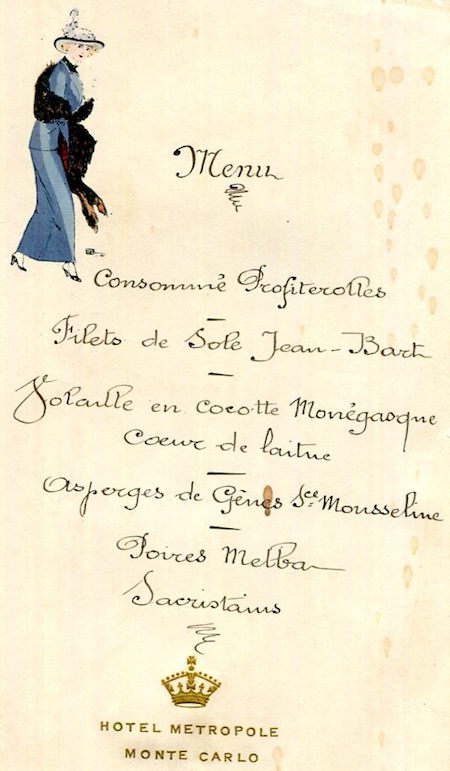 Menu
Consommé Profiterolles
Filets de Sole Jean-Bart
Volaille en cocotte Monégasque
Coeur de laitue
Asperges de Gênes Sce Mousseline
Poires Melba
Sacristains
HOTEL METROPOLE
MONTE CARLO